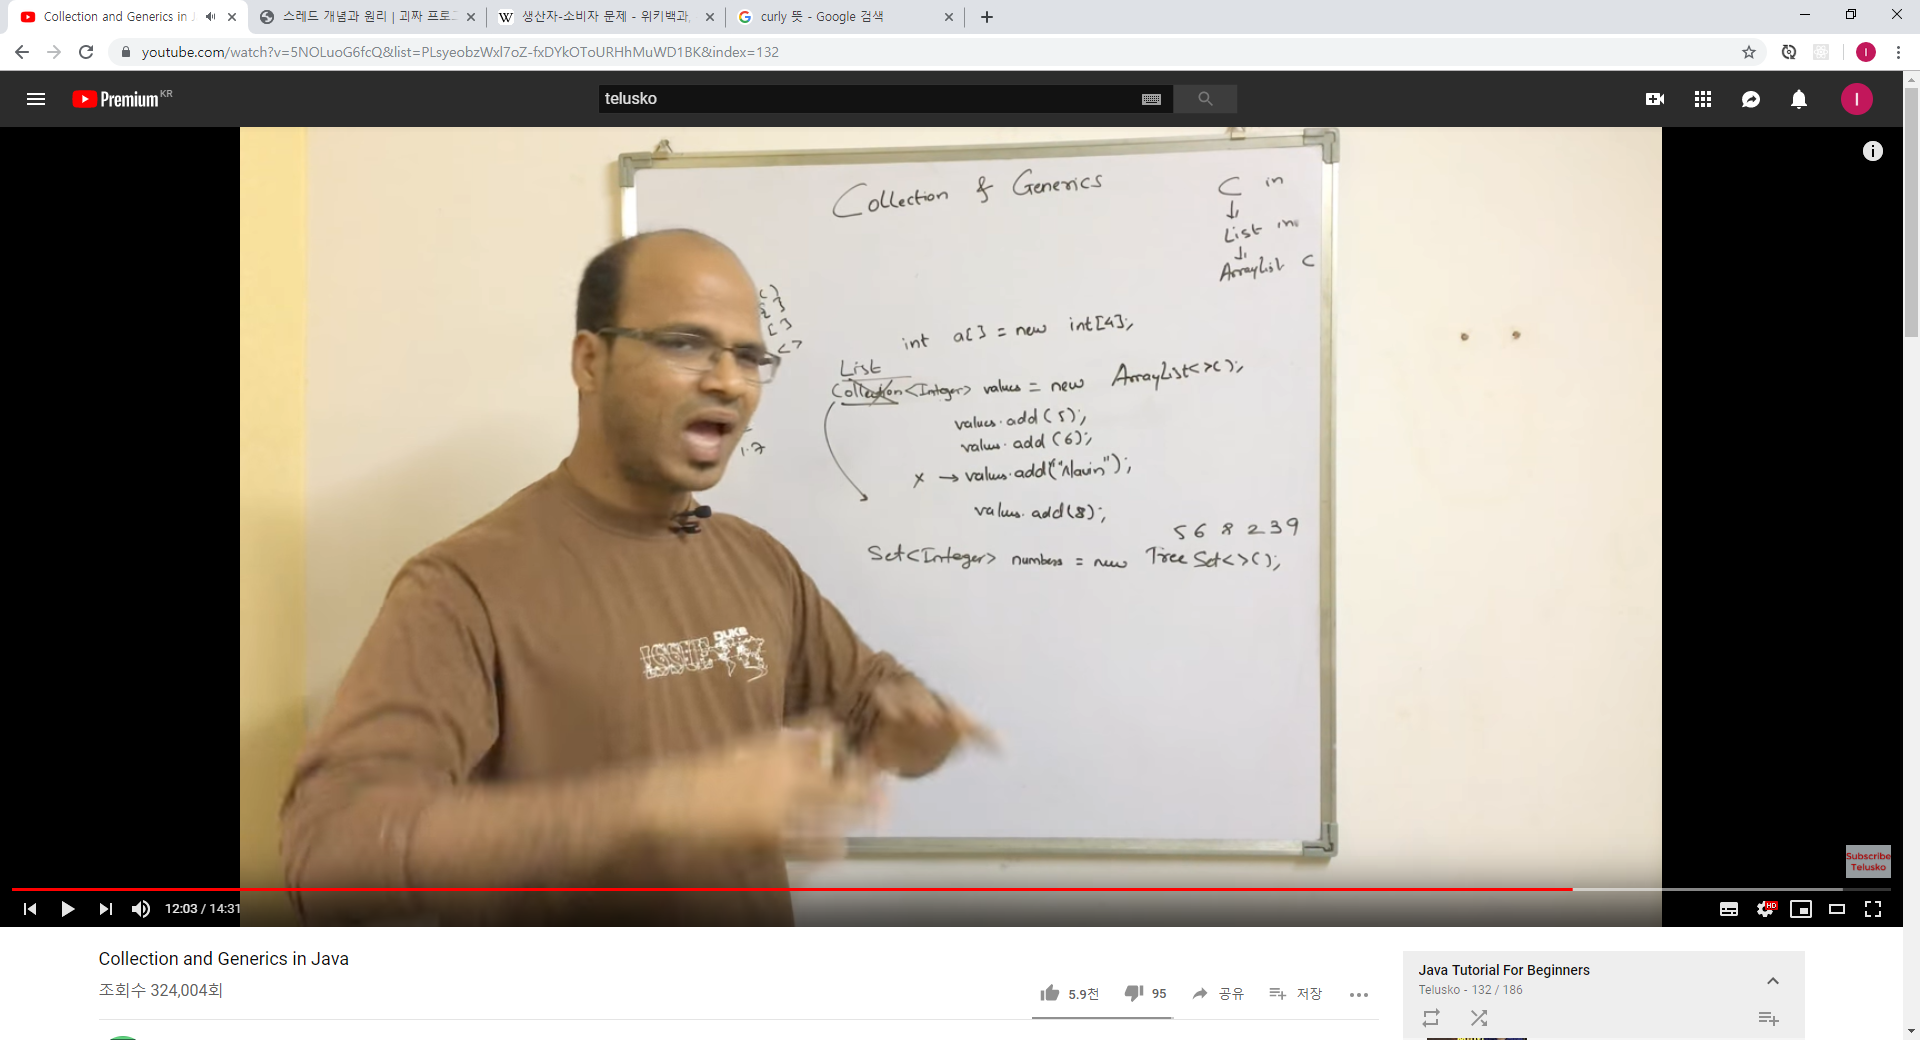 Collection and Generics in J
스레드 개념과 원리 | 괴짜 프로그
생산자-소비자 문제 - 위키백과,
curly 뜻 - Google 검색
youtube.com/watch?v=5NOLuoG6fcQ&list=PLsyeobzWxl7oZ-fxDYkOToURHhMuWD1BK&index=132
I
Premium KR
telusko
I
Collection & Generics
C in
List in
ArrayList C
( )
{ }
[ ]
< >
int a[] = new int[4];
List
Collection<Integer> values = new ArrayList<>();
values.add(5);
values.add(6);
1.7
x → values.add("Navin");
values.add(8);
5 6 8 2 3 9
Set<Integer> numbers = new TreeSet<>();
DUKE
Subscribe
Telusko
12:03 / 14:31
HD
Collection and Generics in Java
조회수 324,004회
5.9천
95
공유
저장
Java Tutorial For Beginners
Telusko - 132 / 186